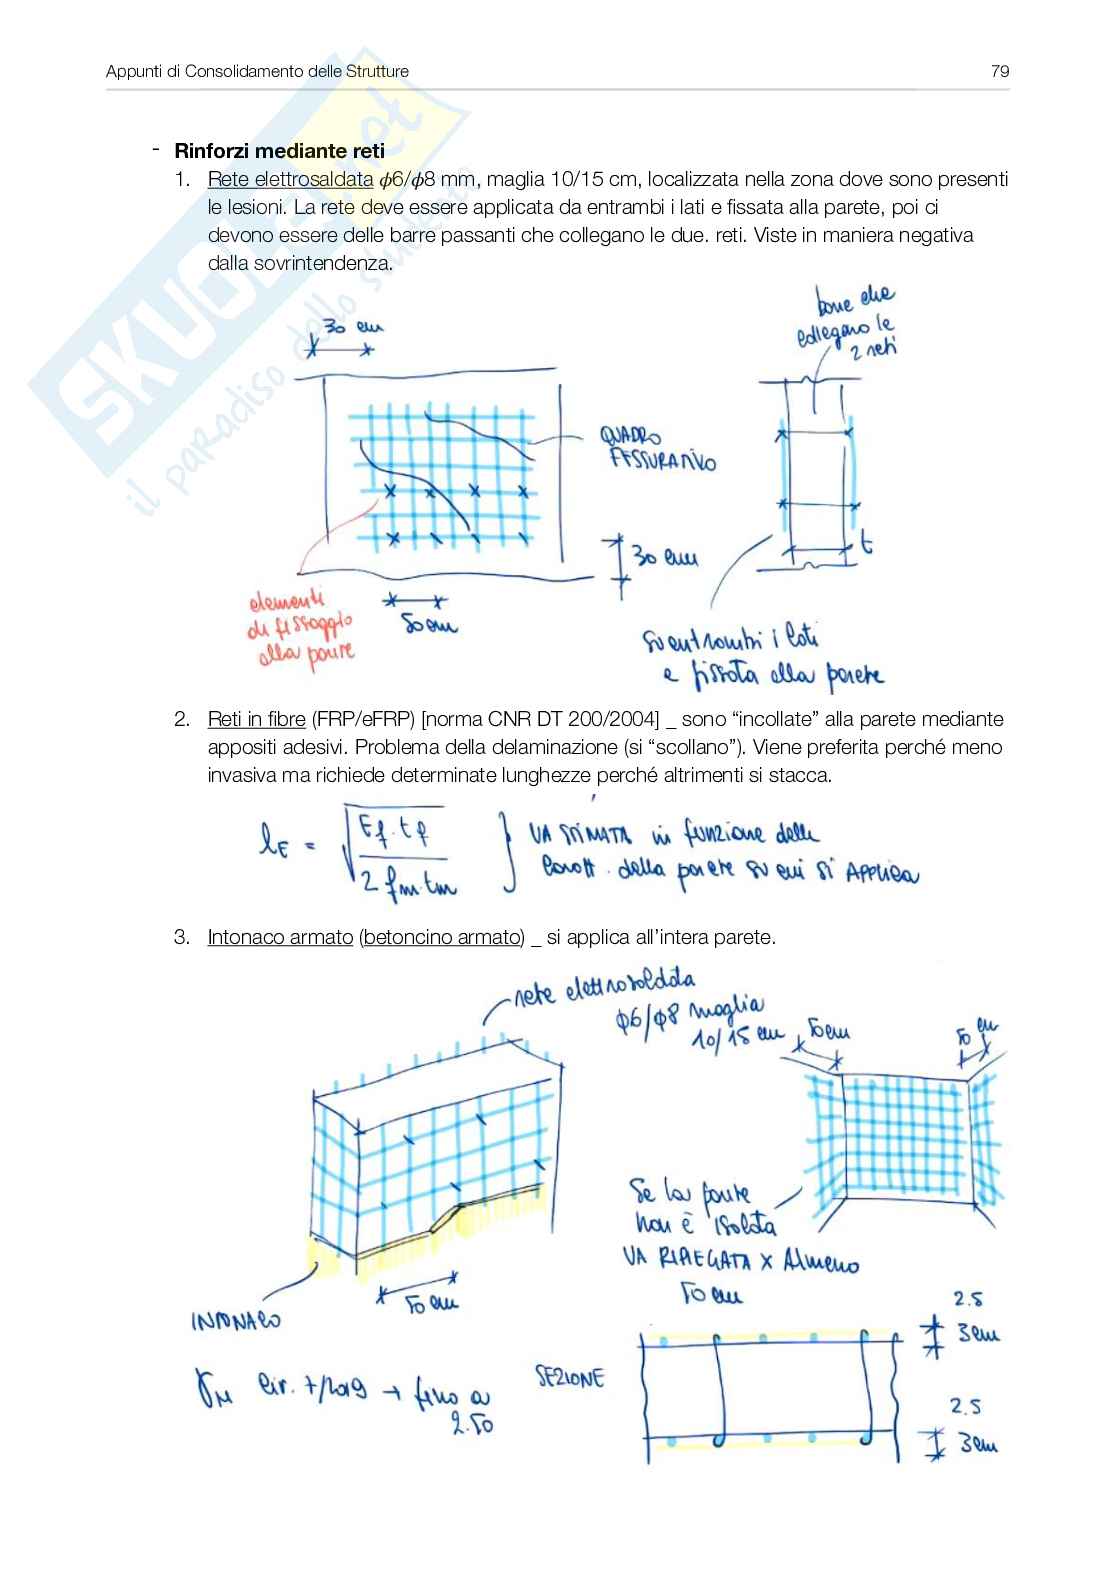 Appunti di Consolidamento delle Strutture 79
- Rinforzi mediante reti
1. Rete elettrosaldata ϕ6/ϕ8 mm, maglia 10/15 cm, localizzata nella zona dove sono presenti
le lesioni. La rete deve essere applicata da entrambi i lati e fissata alla parete, poi ci
devono essere delle barre passanti che collegano le due. reti. Viste in maniera negativa
dalla sovrintendenza.
SKUOLA.net
il paradiso dello studente
30 cm
barre che
collegano le
2 reti
QUADRO
FESSURATIVO
30 cm
t
elementi
di fissaggio
alla parete
50 cm
su entrambi i lati
e fissata alla parete
2. Reti in fibre (FRP/eFRP) [norma CNR DT 200/2004] _ sono “incollate” alla parete mediante
appositi adesivi. Problema della delaminazione (si “scollano”). Viene preferita perché meno
invasiva ma richiede determinate lunghezze perché altrimenti si stacca.
lE = √(Ef · tf / 2 fm · tm) } VA STIMATA in funzione delle
caratt. della parete su cui si APPLICA
3. Intonaco armato (betoncino armato) _ si applica all’intera parete.
rete elettrosaldata
ϕ6/ϕ8 maglia
10/15 cm
50 cm
50 cm
Se la parete
non è isolata
VA RIPIEGATA x Almeno
50 cm
50 cm
INTONACO
2.5
3 cm
SEZIONE
fino a
2.50
2.5
3 cm